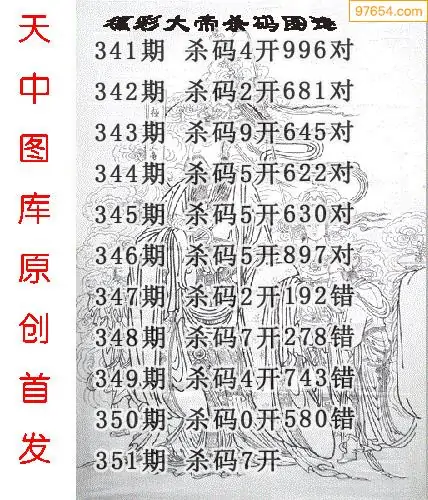 97654.com
福彩大帝杀码图迷
341期 杀码4开996对
342期 杀码2开681对
343期 杀码9开645对
344期 杀码5开622对
345期 杀码5开630对
346期 杀码5开897对
347期 杀码2开192错
348期 杀码7开278错
349期 杀码4开743错
350期 杀码0开580错
351期 杀码7开
天中图库原创首发